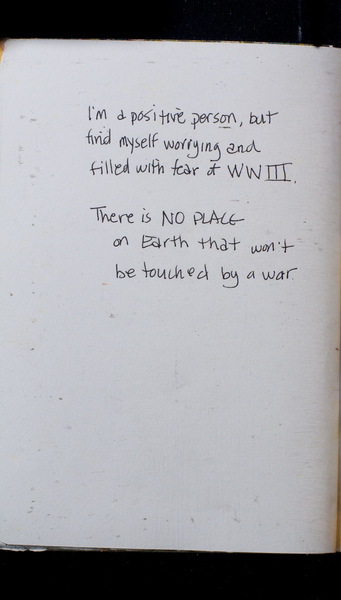 I'm a positive person, but
find myself worrying and
filled with fear of WWIII.
There is NO PLACE
on Earth that won't
be touched by a war.